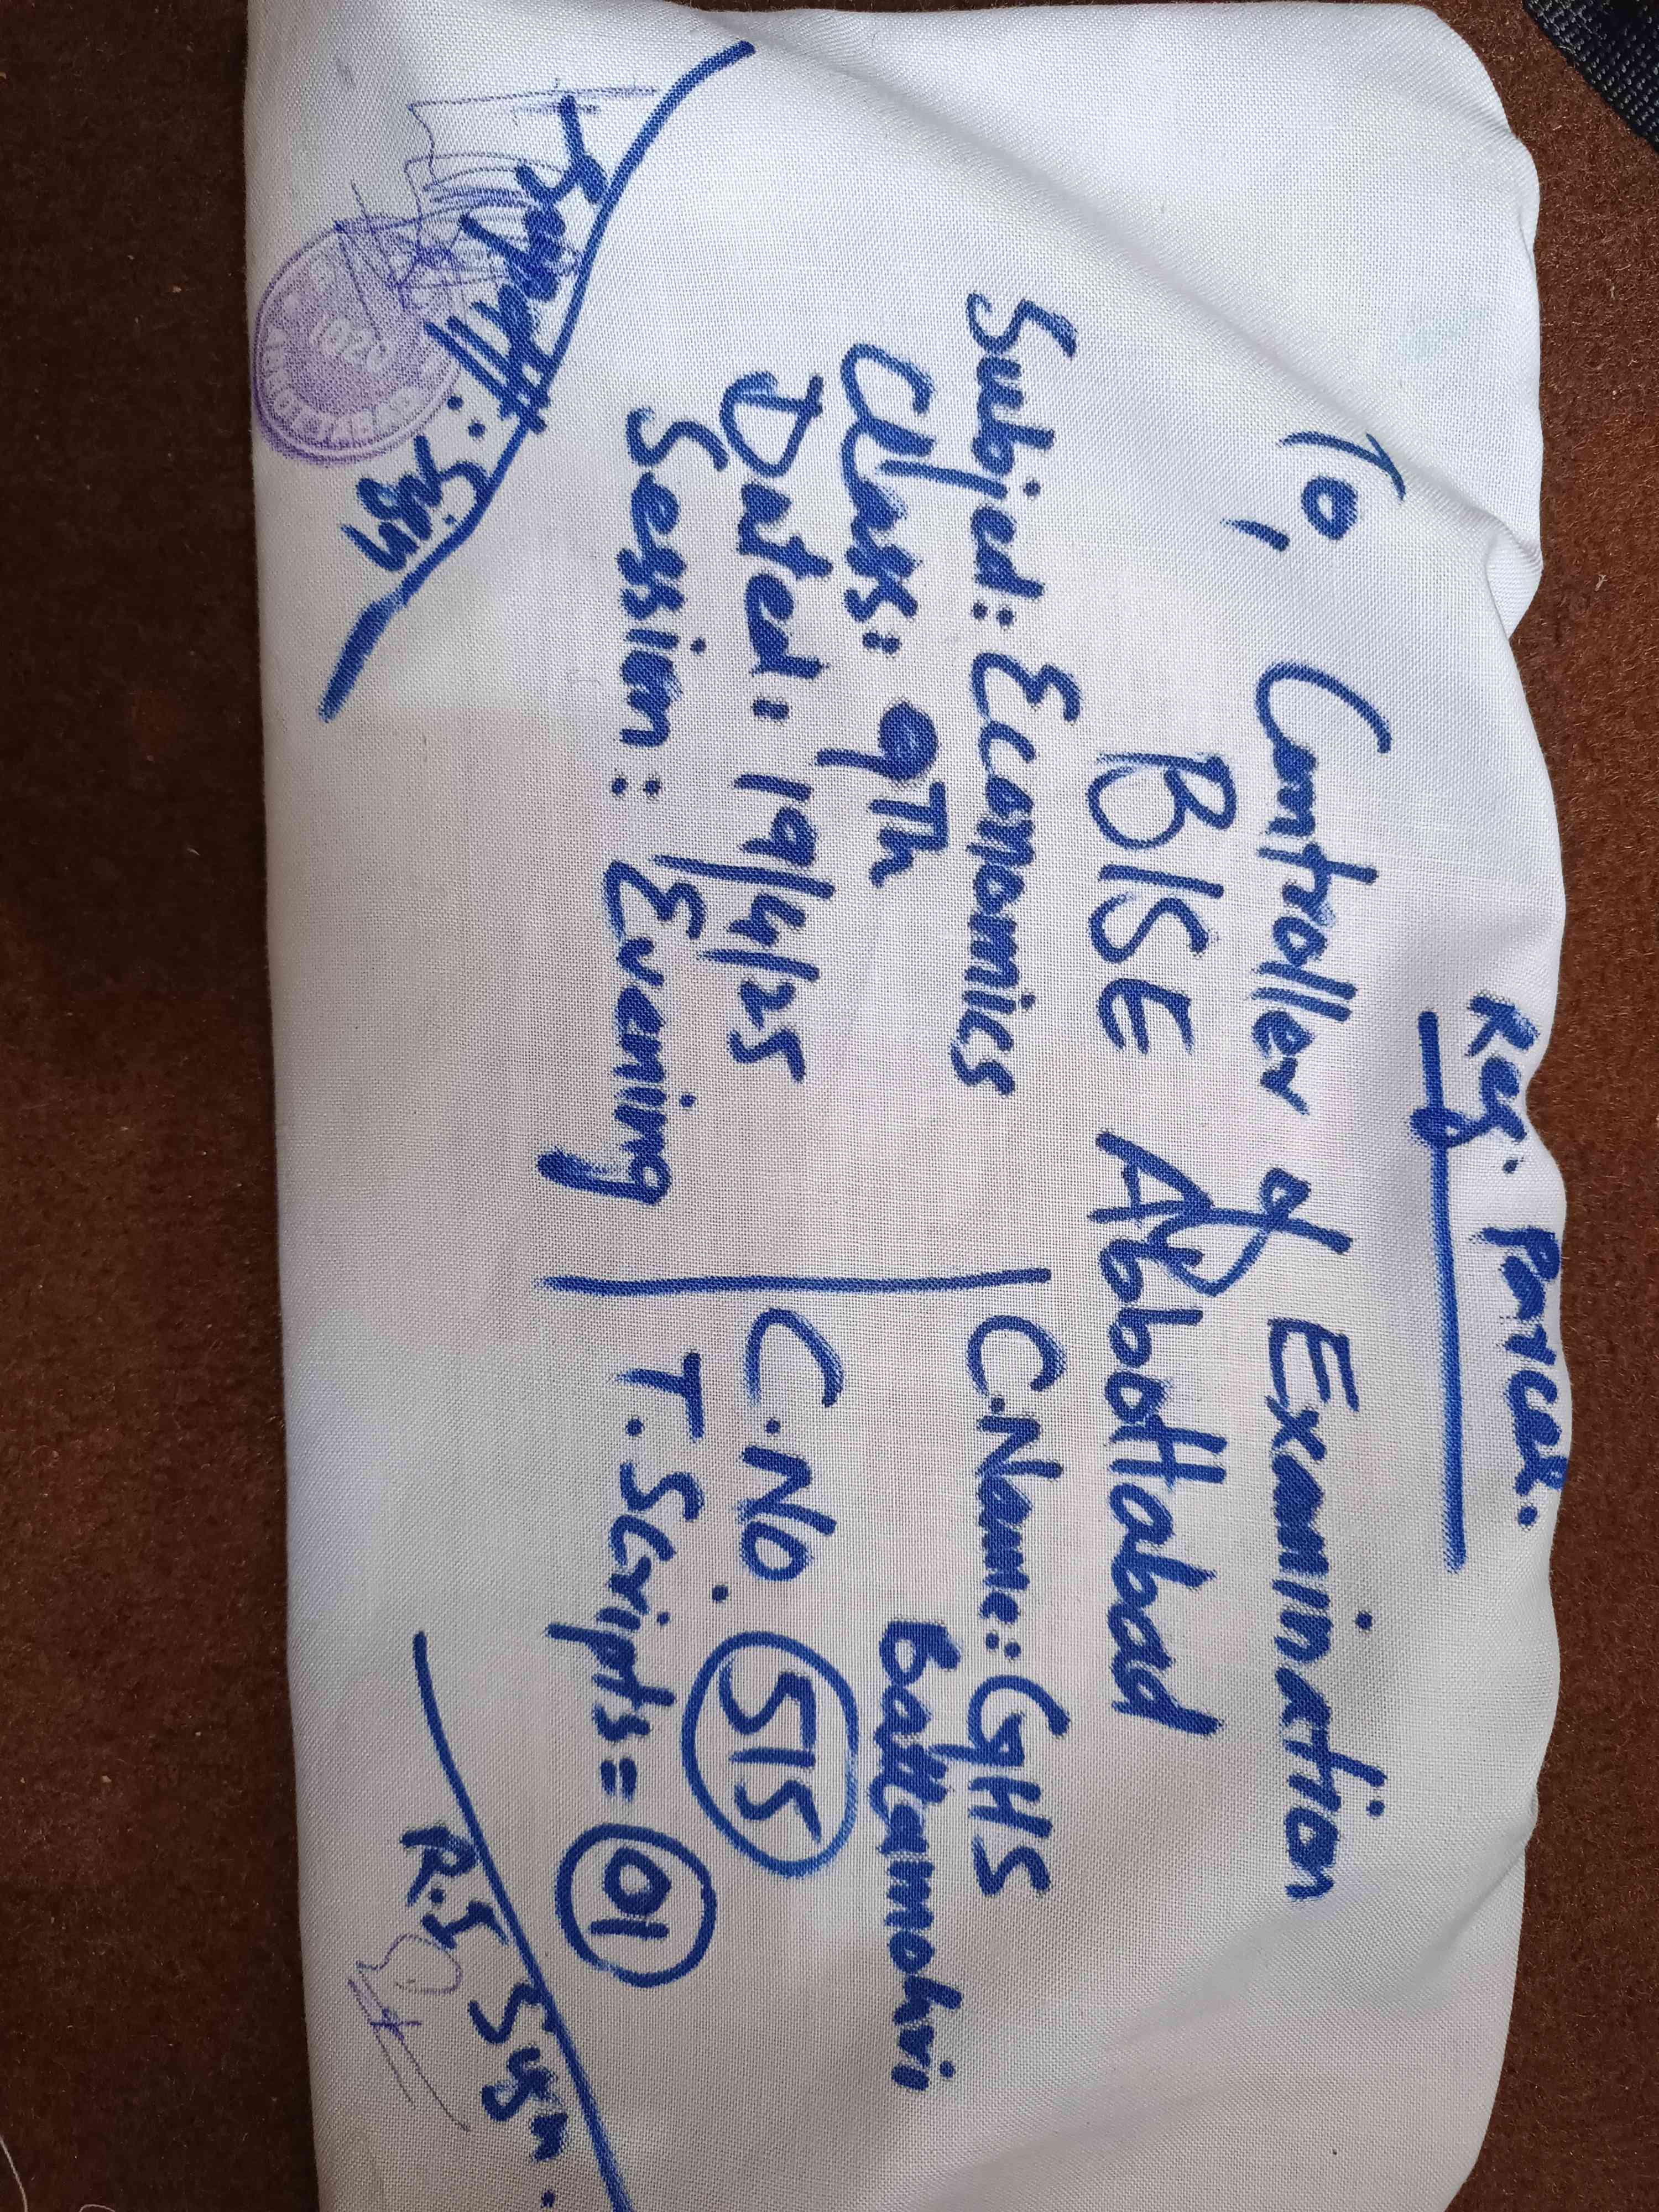 Reg. Parcel.
To,
Controller of Examination
BISE Abbottabad
Subject: Economics
Class: 9Th
Dated: 19/4/25
Session: Evening
C.Name: GHS
Battamohri
C.No. 515
T.Scripts = 01
Supdtt: Sign
R.I Sign.